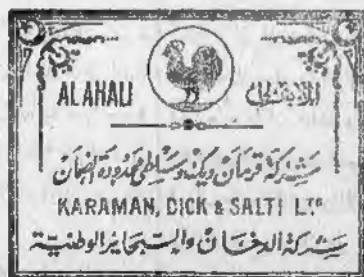 ALAHALI الاهالي
شركة قرمان ديك وسلطي محدودة الضمان
KARAMAN, DICK & SALTI LTD
شركة الدخان والسجاير الوطنية